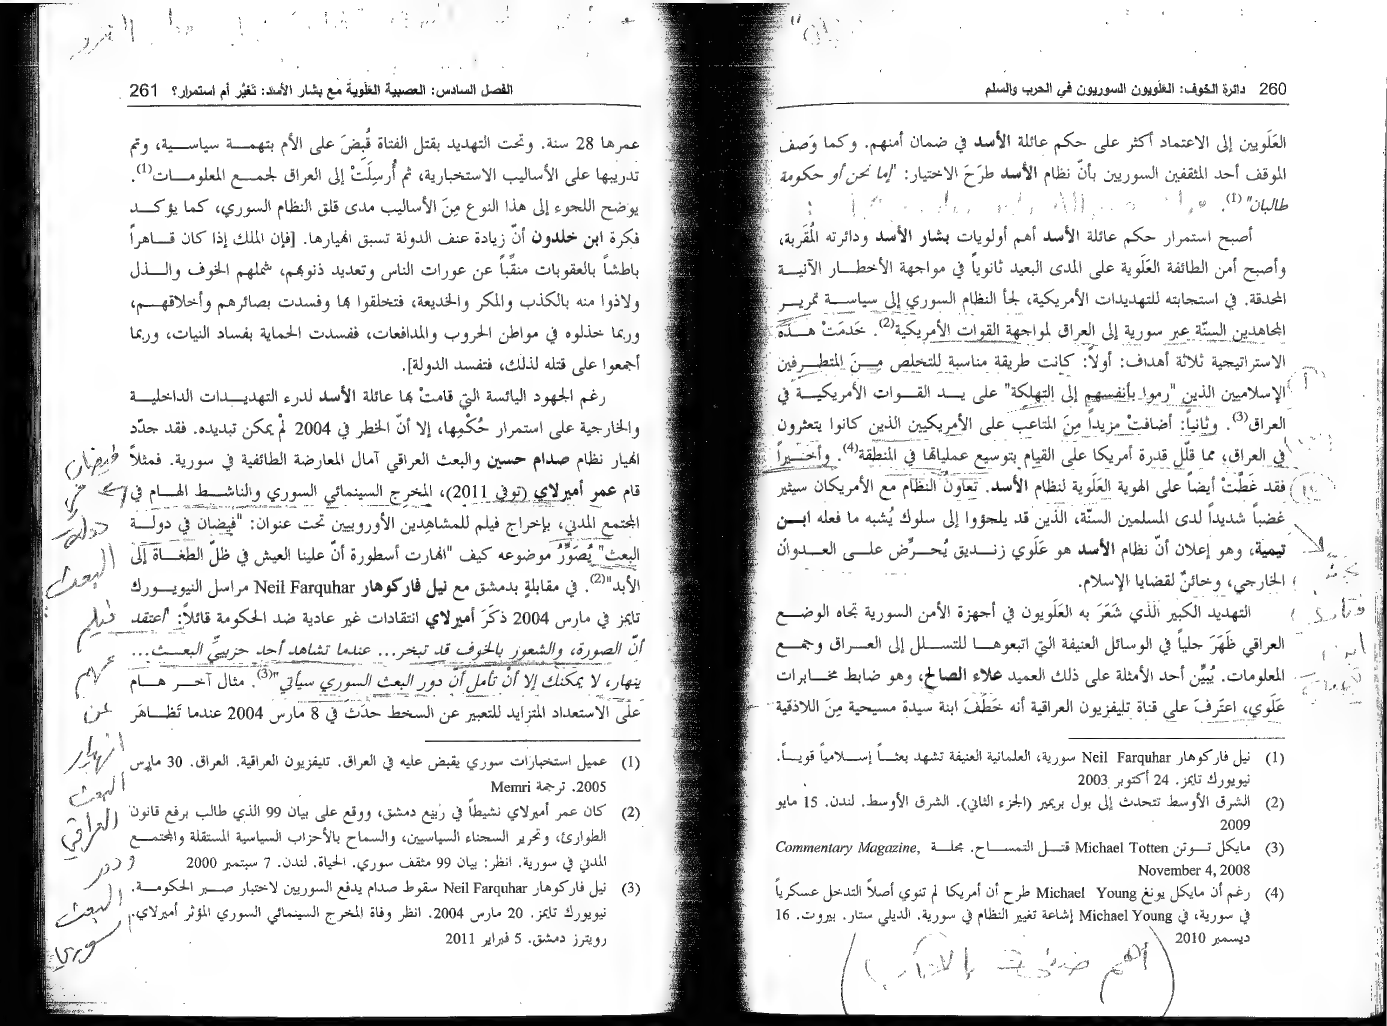 260 دائرة الخوف: العَلَويون السوريون في الحرب والسلم
العَلَويين إلى الاعتماد أكثر على حكم عائلة الأسد في ضمان أمنهم. وكما وَصف
الموقف أحد المثقفين السوريين بأنّ نظام الأسد طرَحَ الاختيار: "إما نحن أو حكومة
طالبان" (1).
أصبح استمرار حكم عائلة الأسد أهم أولويات بشار الأسد ودائرته المُقَربة،
وأصبح أمن الطائفة العَلَوية على المدى البعيد ثانوياً في مواجهة الأخطار الآنية
المحدقة. في استجابته للتهديدات الأمريكية، لجأ النظام السوري إلى سياسة تمرير
المجاهدين السنّة عبر سورية إلى العراق لمواجهة القوات الأمريكية(2). خَدمَتْ هذه
الاستراتيجية ثلاثة أهداف: أولاً: كانت طريقة مناسبة للتخلص مِنَ المتطرفين
الإسلاميين الذين "رموا بأنفسهم إلى التهلكة" على يد القوات الأمريكية في
العراق(3). وثانياً: أضافتْ مزيداً مِنَ المتاعب على الأمريكيين الذين كانوا يتعثرون
في العراق، مما قلّل قدرة أمريكا على القيام بتوسيع عملياتها في المنطقة(4). وأخيراً
فقد غطّتْ أيضاً على الهوية العَلَوية لنظام الأسد. تعاونُ النظام مع الأمريكان سيثير
غضباً شديداً لدى المسلمين السنّة، الذين قد يلجؤوا إلى سلوك يُشبه ما فعله ابن
تيمية، وهو إعلان أنّ نظام الأسد هو عَلَوي زنديق يُحرِّض على العدوان
الخارجي، وخائنٌ لقضايا الإسلام.
التهديد الكبير الذي شَعَرَ به العَلَويون في أجهزة الأمن السورية تجاه الوضع
العراقي ظَهَرَ جلياً في الوسائل العنيفة التي اتبعوها للتسلل إلى العراق وجمع
المعلومات. يُبيِّن أحد الأمثلة على ذلك العميد علاء الصالح، وهو ضابط مخابرات
عَلَوي، اعترفَ على قناة تليفزيون العراقية أنه خَطَفَ ابنة سيدة مسيحية مِنَ اللاذقية
(1) نيل فاركوهار Neil Farquhar سورية، العلمانية العنيفة تشهد بعثاً إسلامياً قوياً.
نيويورك تايمز. 24 أكتوبر 2003
(2) الشرق الأوسط تتحدث إلى بول بريمير (الجزء الثاني). الشرق الأوسط. لندن. 15 مايو
2009
(3) مايكل توتن Michael Totten قتل التمساح. مجلة Commentary Magazine,
November 4, 2008
(4) رغم أن مايكل يونغ Michael Young طرح أن أمريكا لم تنوي أصلاً التدخل عسكرياً
في سورية، في Michael Young إشاعة تغيير النظام في سورية. الديلي ستار. بيروت. 16
ديسمبر 2010
الفصل السادس: العصبية العَلَوية مع بشار الأسد: تَغيُّر أم استمرار؟ 261
عمرها 28 سنة. وتحت التهديد بقتل الفتاة قُبِضَ على الأم بتهمة سياسية، وتم
تدريبها على الأساليب الاستخبارية، ثم أُرسِلَتْ إلى العراق لجمع المعلومات(1).
يوضح اللجوء إلى هذا النوع مِنَ الأساليب مدى قلق النظام السوري، كما يؤكد
فكرة ابن خلدون أنّ زيادة عنف الدولة تسبق انهيارها. [فإن الملك إذا كان قاهراً
باطشاً بالعقوبات منقّباً عن عورات الناس وتعديد ذنوبهم، شملهم الخوف والذل
ولاذوا منه بالكذب والمكر والخديعة، فتخلقوا بها وفسدت بصائرهم وأخلاقهم،
وربما خذلوه في مواطن الحروب والمدافعات، ففسدت الحماية بفساد النيات، وربما
أجمعوا على قتله لذلك، فتفسد الدولة].
رغم الجهود اليائسة التي قامتْ بها عائلة الأسد لدرء التهديدات الداخلية
والخارجية على استمرار حُكْمِها، إلا أنّ الخطر في 2004 لمْ يمكن تبديده. فقد جدّد
انهيار نظام صدام حسين والبعث العراقي آمال المعارضة الطائفية في سورية. فمثلاً
قام عمر أميرلاي (توفي 2011)، المخرج السينمائي السوري والناشط الهام في
المجتمع المدني، بإخراج فيلم للمشاهِدين الأوروبيين تحت عنوان: "فيضان في دولة
البعث" يُصَوِّرُ موضوعه كيف "انهارت أسطورة أنّ علينا العيش في ظلّ الطغاة إلى
الأبد"(2). في مقابلةٍ بدمشق مع نيل فاركوهار Neil Farquhar مراسل النيويورك
تايمز في مارس 2004 ذكَرَ أميرلاي انتقادات غير عادية ضد الحكومة قائلاً: "أعتقد
أنّ الصورة، والشعور بالخوف قد تبخر... عندما تشاهد أحد حزبيّ البعث...
ينهار، لا يمكنك إلا أنْ تأمل أن دور البعث السوري سيأتي"(3). مثال آخر هام
على الاستعداد المتزايد للتعبير عن السخط حدَثَ في 8 مارس 2004 عندما تَظاهَر
(1) عميل استخبارات سوري يقبض عليه في العراق. تليفزيون العراقية. العراق. 30 مارس
2005. ترجمة Memri
(2) كان عمر أميرلاي نشيطاً في ربيع دمشق، ووقع على بيان 99 الذي طالب برفع قانون
الطوارئ، وتحرير السجناء السياسيين، والسماح بالأحزاب السياسية المستقلة والمجتمع
المدني في سورية. انظر: بيان 99 مثقف سوري. الحياة. لندن. 7 سبتمبر 2000
(3) نيل فاركوهار Neil Farquhar سقوط صدام يدفع السوريين لاختبار صبر الحكومة.
نيويورك تايمز. 20 مارس 2004. انظر وفاة المخرج السينمائي السوري المؤثر أميرلاي.
رويترز دمشق. 5 فبراير 2011
فيضان
في
دولة
البعث
فيلم
مهم
عن
انهيار
البعث
العراقي
ودور
البعث
سوري